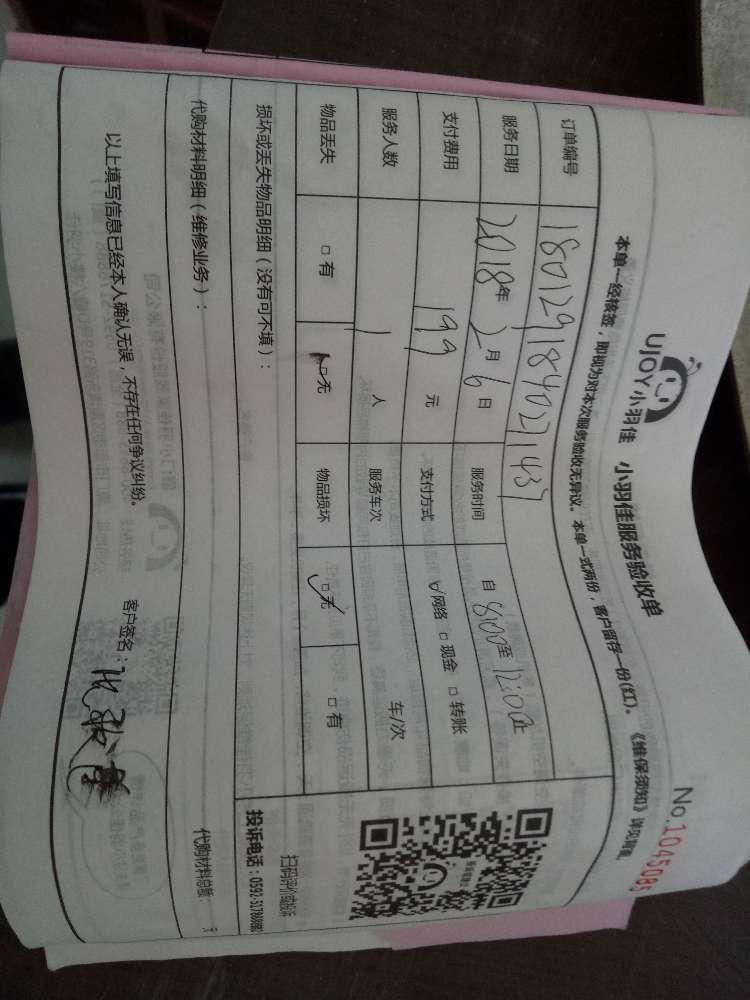 UJOY小羽佳 小羽佳服务验收单
No.1045085
本单一经核签，即视为对本次服务验收无异议。本单一式两份，客户留存一份(红)。《维保须知》详见背面。
订单编号 18012918402143
服务日期 2018年2月6日 服务时间 自8:00至12:00止
支付费用 199元 支付方式 ☑网络 □现金 □转账
服务人数 1人 服务车次 车/次
物品丢失 □有 ☑无 物品损坏 ☑无 □有
扫码评价或投诉
损坏或丢失物品明细（没有可不填）：
投诉电话：0592-5178
代购材料明细（维修业务）：
代购材料总额：
以上填写信息已经本人确认无误，不存在任何争议纠纷。
客户签名：